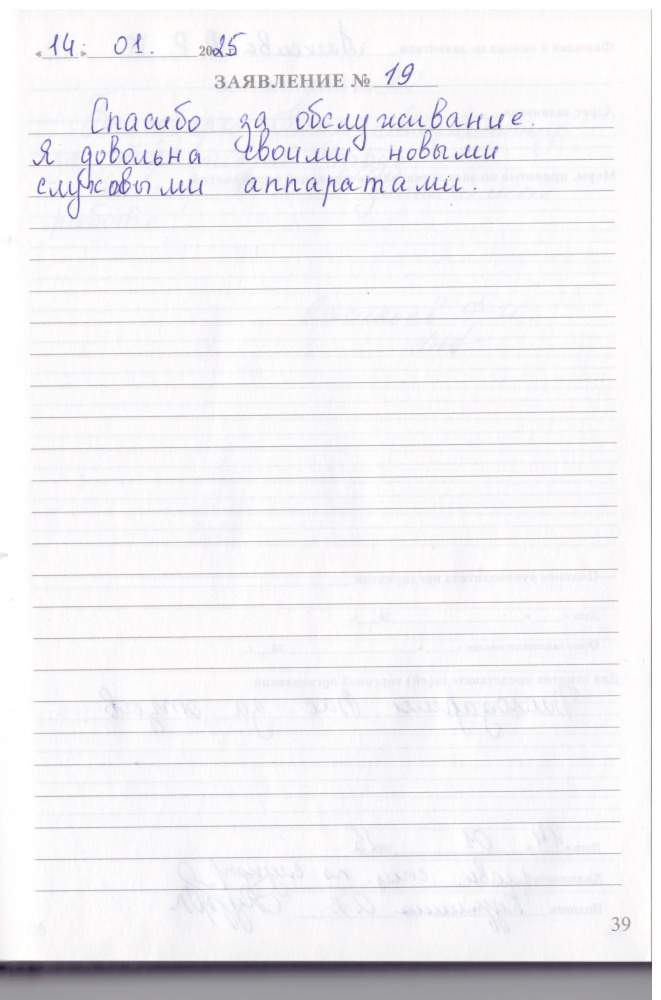 «14» 01. 2025
ЗАЯВЛЕНИЕ № 19
Спасибо за обслуживание.
Я довольна своими новыми
слуховыми аппаратами.
39